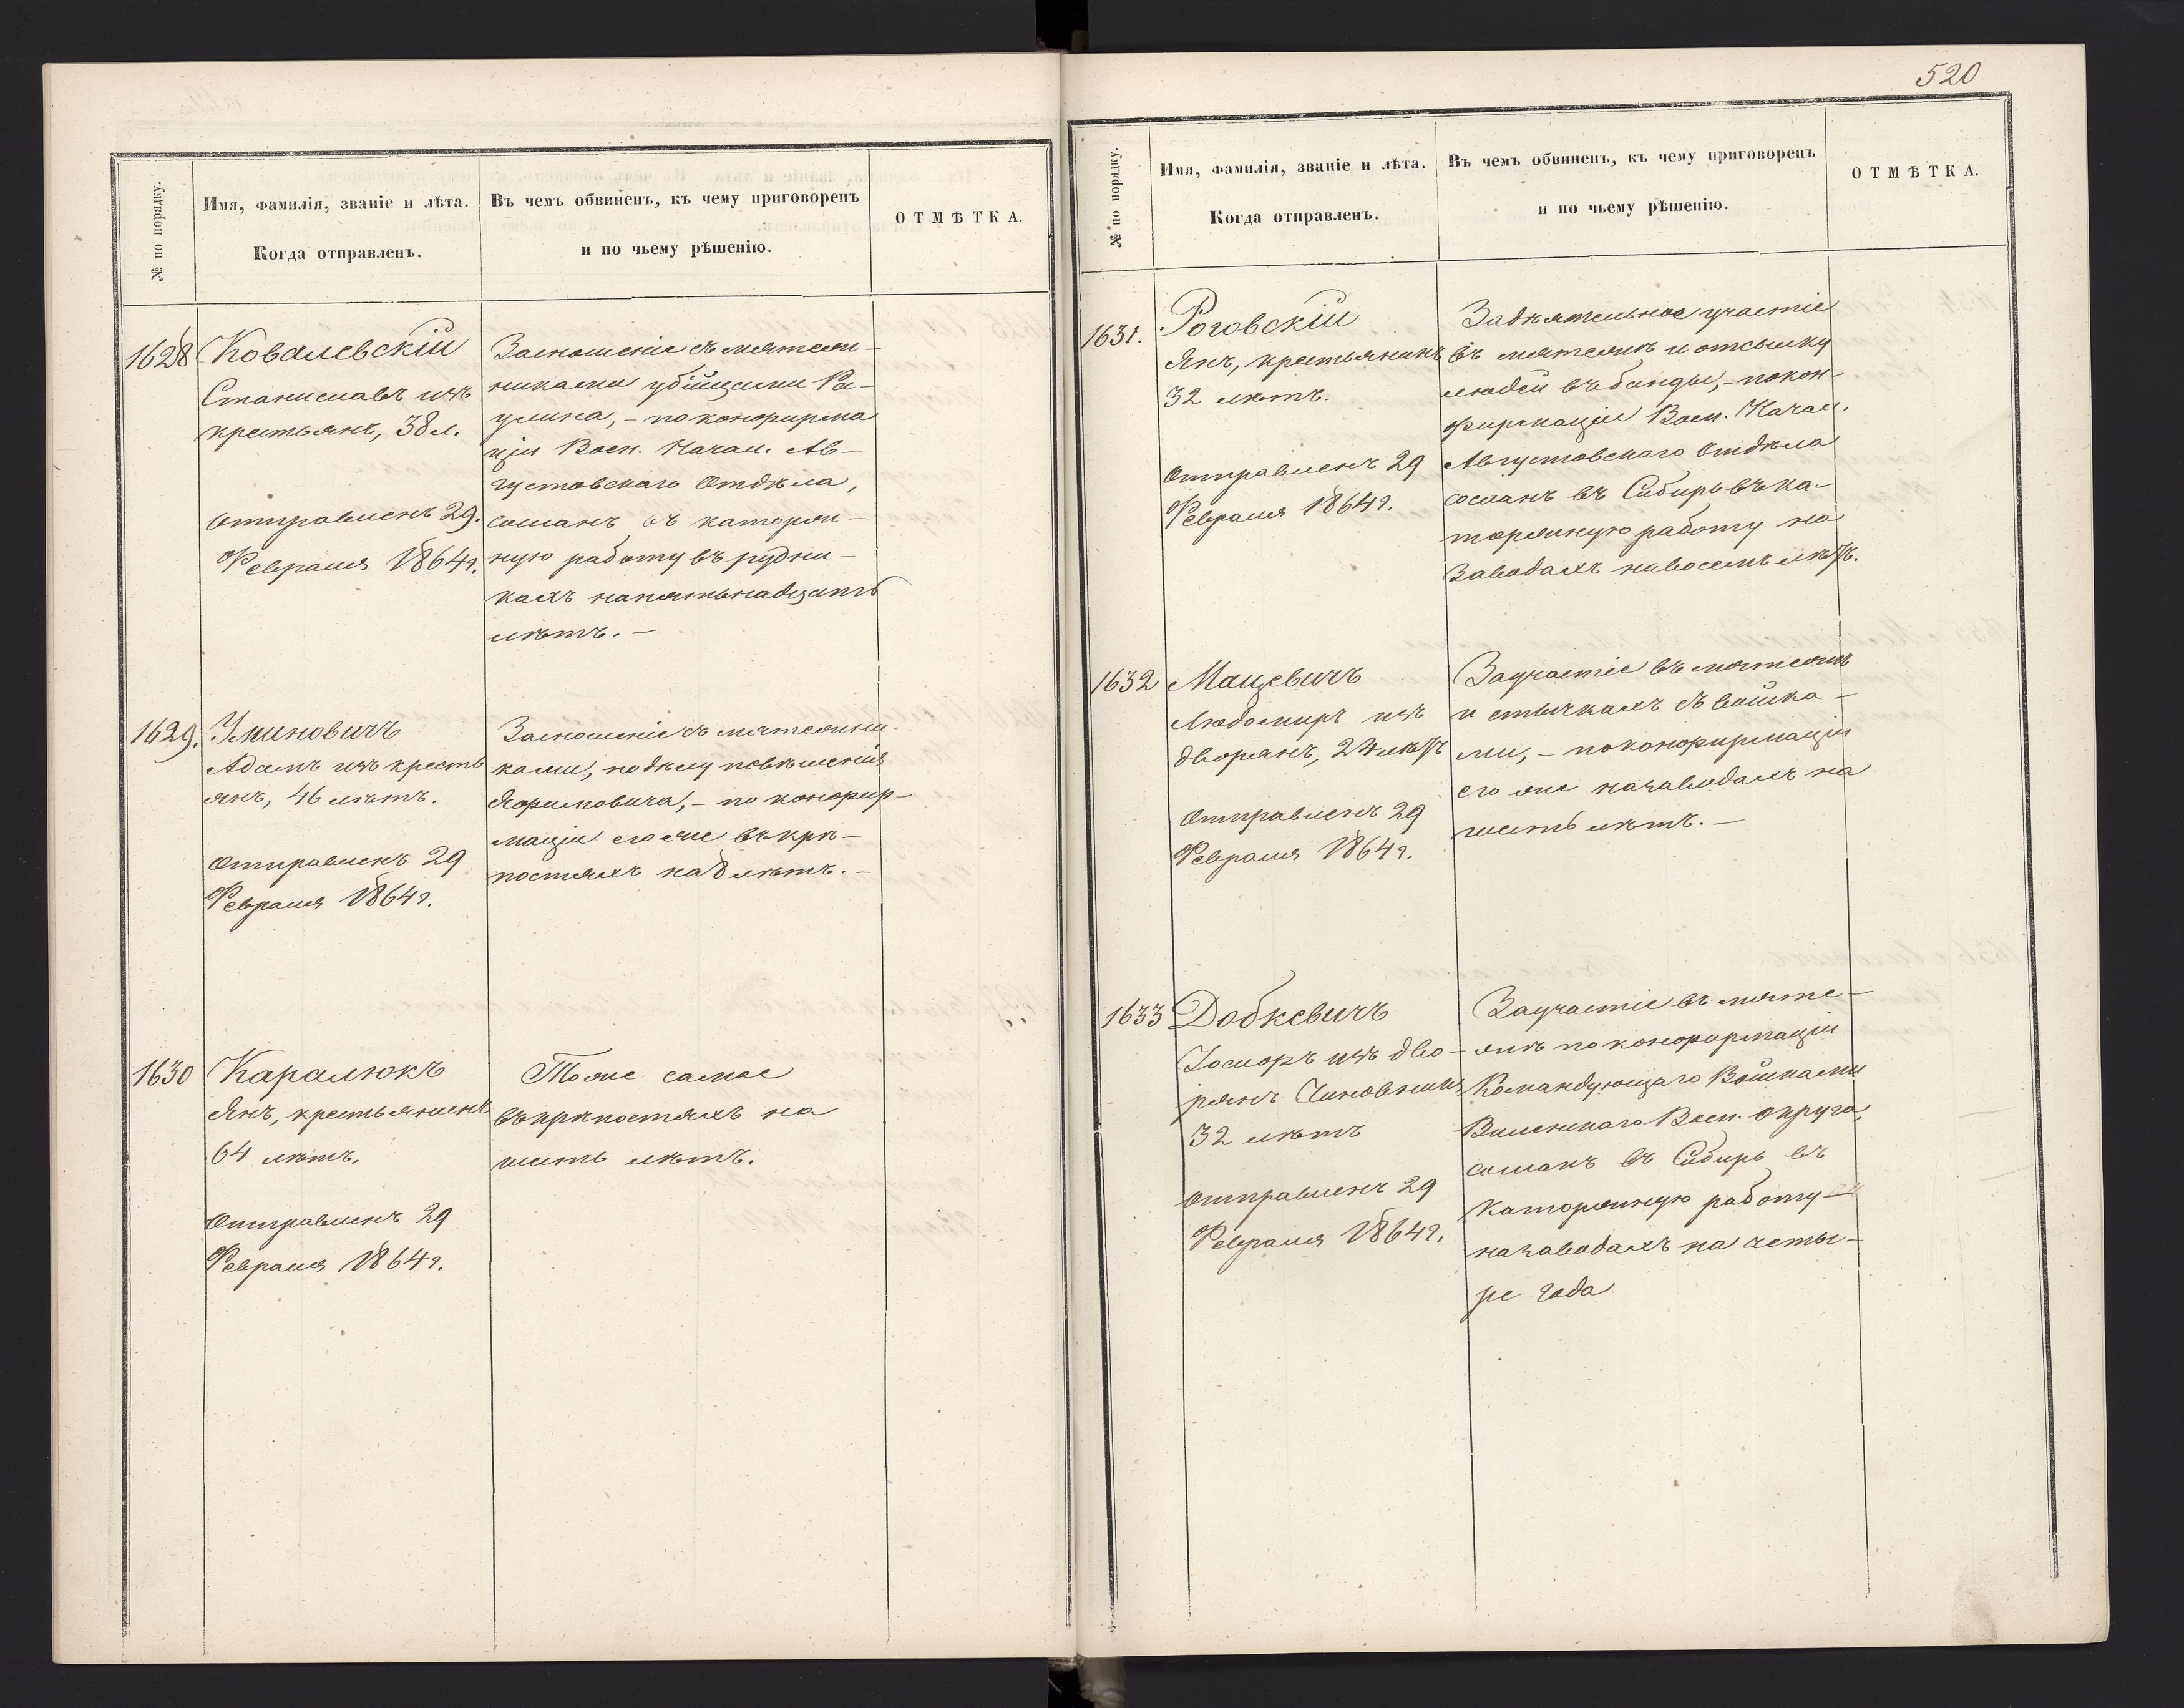 № по порядку.
Имя, фамилія, званіе и лѣта.
Когда отправленъ.
Въ чемъ обвиненъ, къ чему приговоренъ
и по чьему рѣшенію.
ОТМѢТКА.
1628
Ковалевскій
Станиславъ изъ
крестьянъ, 38 л.
Отправленъ 29.
Февраля 1864 г.
За сношеніе съ мятеж-
никами убійцами Ра-
улина, - по конфирма
ціи Воен. Начал. Ав-
густовскаго Отдѣла,
сосланъ въ каторж-
ную работу въ рудни-
кахъ на пятьнадцать
лѣтъ. -
1629.
Улиновичъ
Адамъ изъ кресть
янъ, 46 лѣтъ.
Отправленъ 29
Февраля 1864 г.
За сношеніе съ мятежни-
ками, по дѣлу повѣшенія
Яфимовича, - по конфир-
маціи его же въ крѣ-
постяхъ на 8 лѣтъ. -
1630
Каралюкъ
Янъ, крестьянинъ
64 лѣтъ.
Отправленъ 29
Февраля 1864 г.
Тоже самое
въ крѣпостяхъ на
шесть лѣтъ.
520
№ по порядку.
Имя, фамилія, званіе и лѣта.
Когда отправленъ.
Въ чемъ обвиненъ, къ чему приговоренъ
и по чьему рѣшенію.
ОТМѢТКА.
1631.
Роговскій
Янъ, крестьянинъ
32 лѣтъ.
Отправленъ 29
Февраля 1864 г.
За дѣятельное участіе
въ мятежѣ и отсылку
людей въ банды, - по кон-
фирмаціи Воен. Начал.
Августовскаго Отдѣла
сосланъ въ Сибирь въ ка-
торжную работу на
заводахъ на восемь лѣтъ.
1632
Мацевичъ
Людомиръ изъ
дворянъ, 24 лѣтъ
Отправленъ 29
Февраля 1864 г.
За участіе въ мятежѣ
и стычкахъ съ войска-
ми, - по конфирмаціи
его же на заводахъ на
шесть лѣтъ. -
1633
Добкевичъ
Іосифъ изъ дво-
рянъ Чиновникъ
32 лѣтъ
Отправленъ 29
Февраля 1864 г.
За участіе въ мяте-
жѣ по конфирмаціи
Командующаго Войсками
Виленскаго Воен. Округа,
сосланъ въ Сибирь въ
каторжную работу -
на заводахъ на четы-
ре года